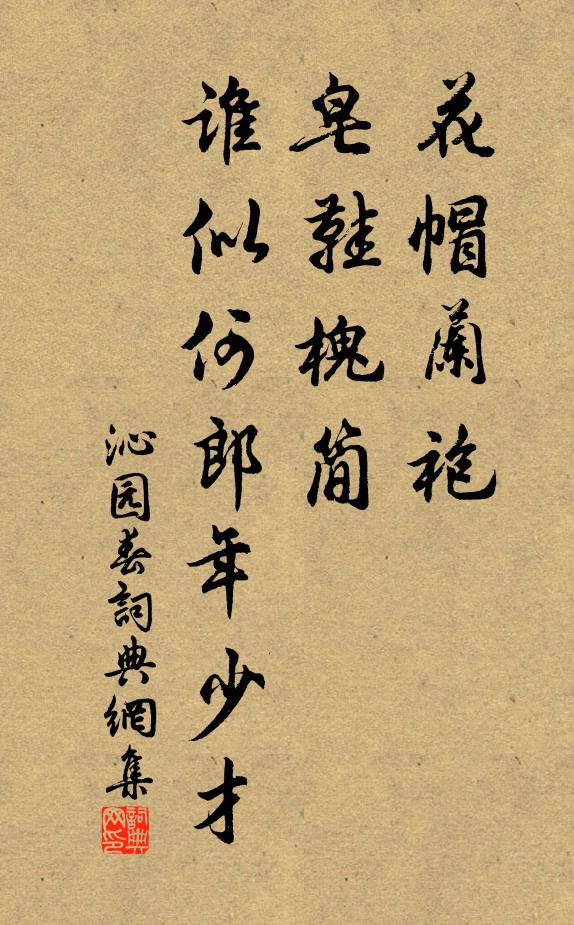 花帽蘭袍
皂鞋槐简
誰似何郎年少才
沁园春詞典網集
詞典网印